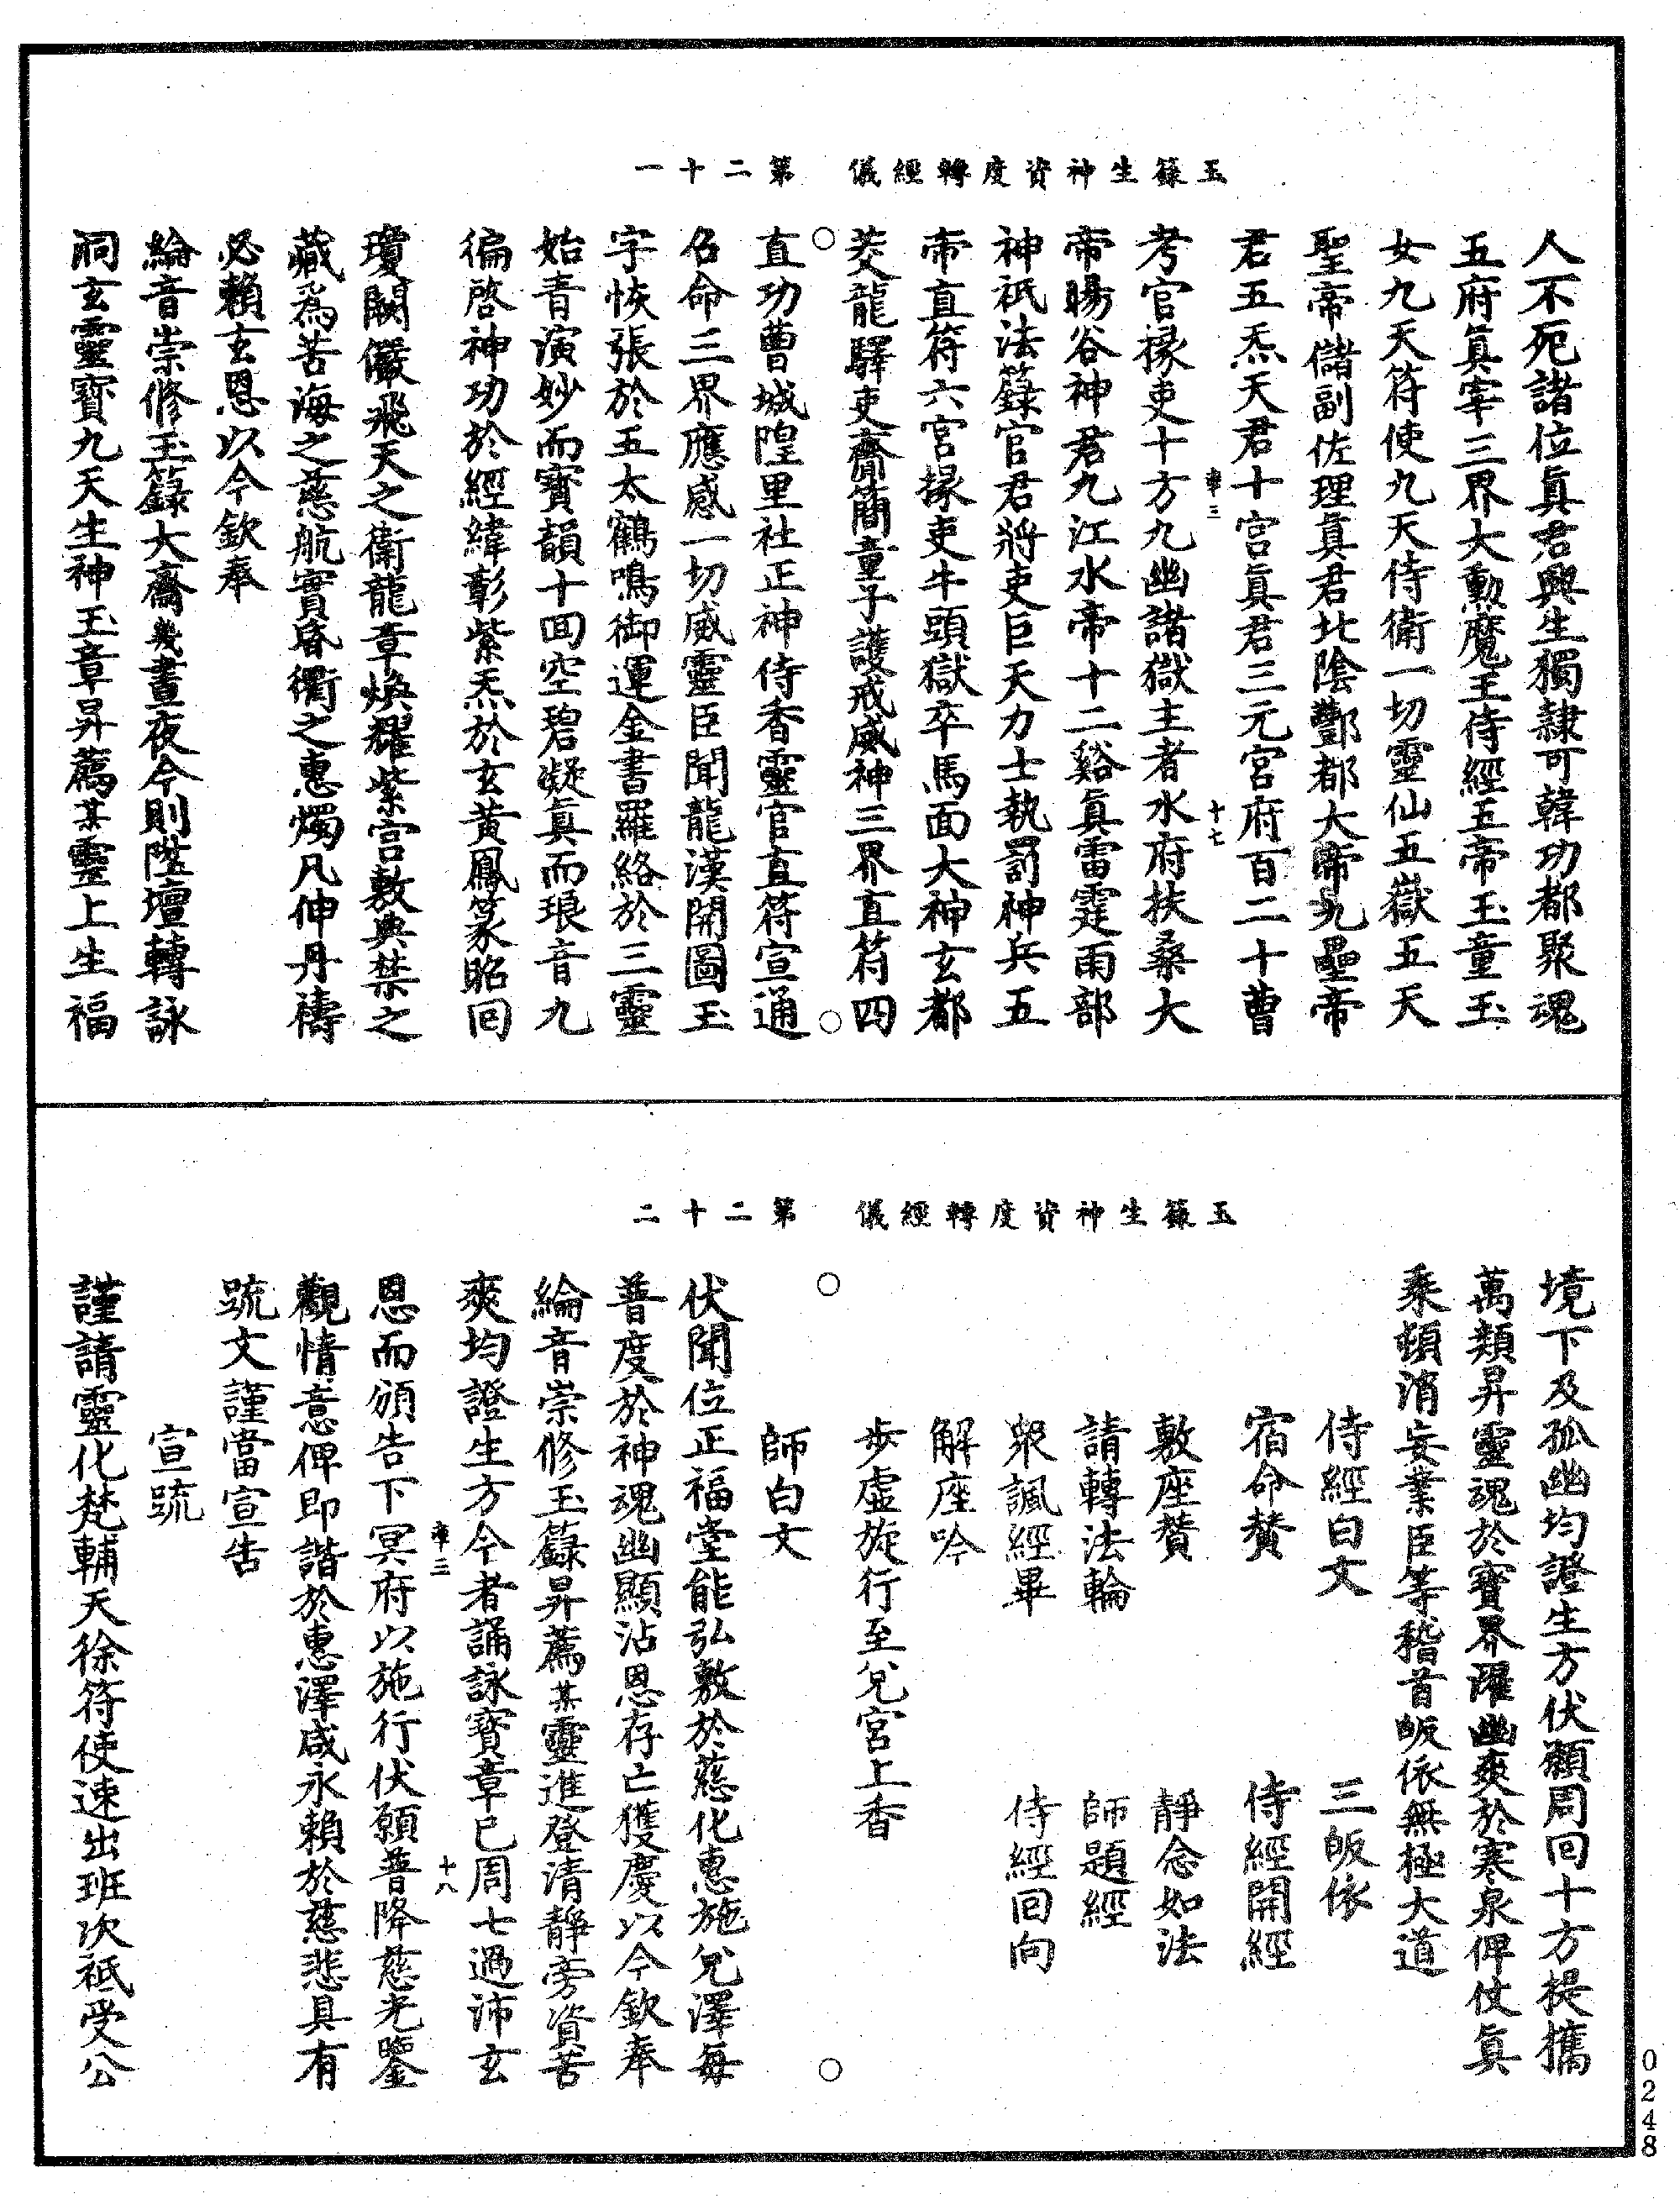 玉籙生神資度轉經儀　第二十一
人不死諸位眞君與生獨隷可韓功都聚魂
五府眞宰三界大勳魔王侍經五帝玉童玉
女九天符使九天侍衛一切靈仙五嶽五天
聖帝儲副佐理眞君北陰酆都大帝九壘帝
君五炁天君十宮眞君三元宮府百二十曹
率三　十七
考官掾吏十方九幽諸獄主者水府扶桑大
帝暘谷神君九江水帝十二谿眞雷霆雨部
神祇法籙官君將吏巨天力士執罰神兵五
帝直符六宮掾吏牛頭獄卒馬面大神玄都
茭龍驛吏齋簡童子護戒威神三界直符四
直功曹城隍里社正神侍香靈官直符宣通
名命三界應感一切威靈臣聞龍漢開圖玉
字恢張於五太鶴鳴御運金書羅絡於三靈
始青演妙而寳韻十回空碧凝眞而琅音九
徧啓神功於經緯彰紫炁於玄黄鳳篆昭回
瓊闕儼飛天之衛龍章煥耀紫宮敷典禁之
藏爲苦海之慈航實昏衢之惠燭凡伸丹禱
必賴玄恩以今欽奉
綸音崇修玉籙大齋幾晝夜今則陞壇轉詠
洞玄靈寶九天生神玉章昇薦某靈上生福
玉籙生神資度轉經儀　第二十二
境下及孤幽均證生方伏願周回十方提攜
萬類昇靈魂於寶界濯幽爽於寒泉俾仗眞
乘頓消妄業臣等稽首皈依無極大道
侍經白文　三皈依
宿命贊　侍經開經
敷座贊　靜念如法
請轉法輪　師題經
衆諷經畢　侍經回向
解座吟
步虛旋行至兌宮上香
師白文
伏聞位正福堂能弘敷於慈化惠施兌澤每
普度於神魂幽顯沾恩存亡獲慶以今欽奉
綸音崇修玉籙昇薦某靈進登清靜旁資苦
爽均證生方今者誦詠寳章已周七過沛玄
率三　十八
恩而頒告下冥府以施行伏願普降慈光鑒
觀情意俾即諧於惠澤咸永賴於慈悲具有
䟽文謹當宣告
宣䟽
謹請靈化梵輔天徐符使速出班次祗受公
0248